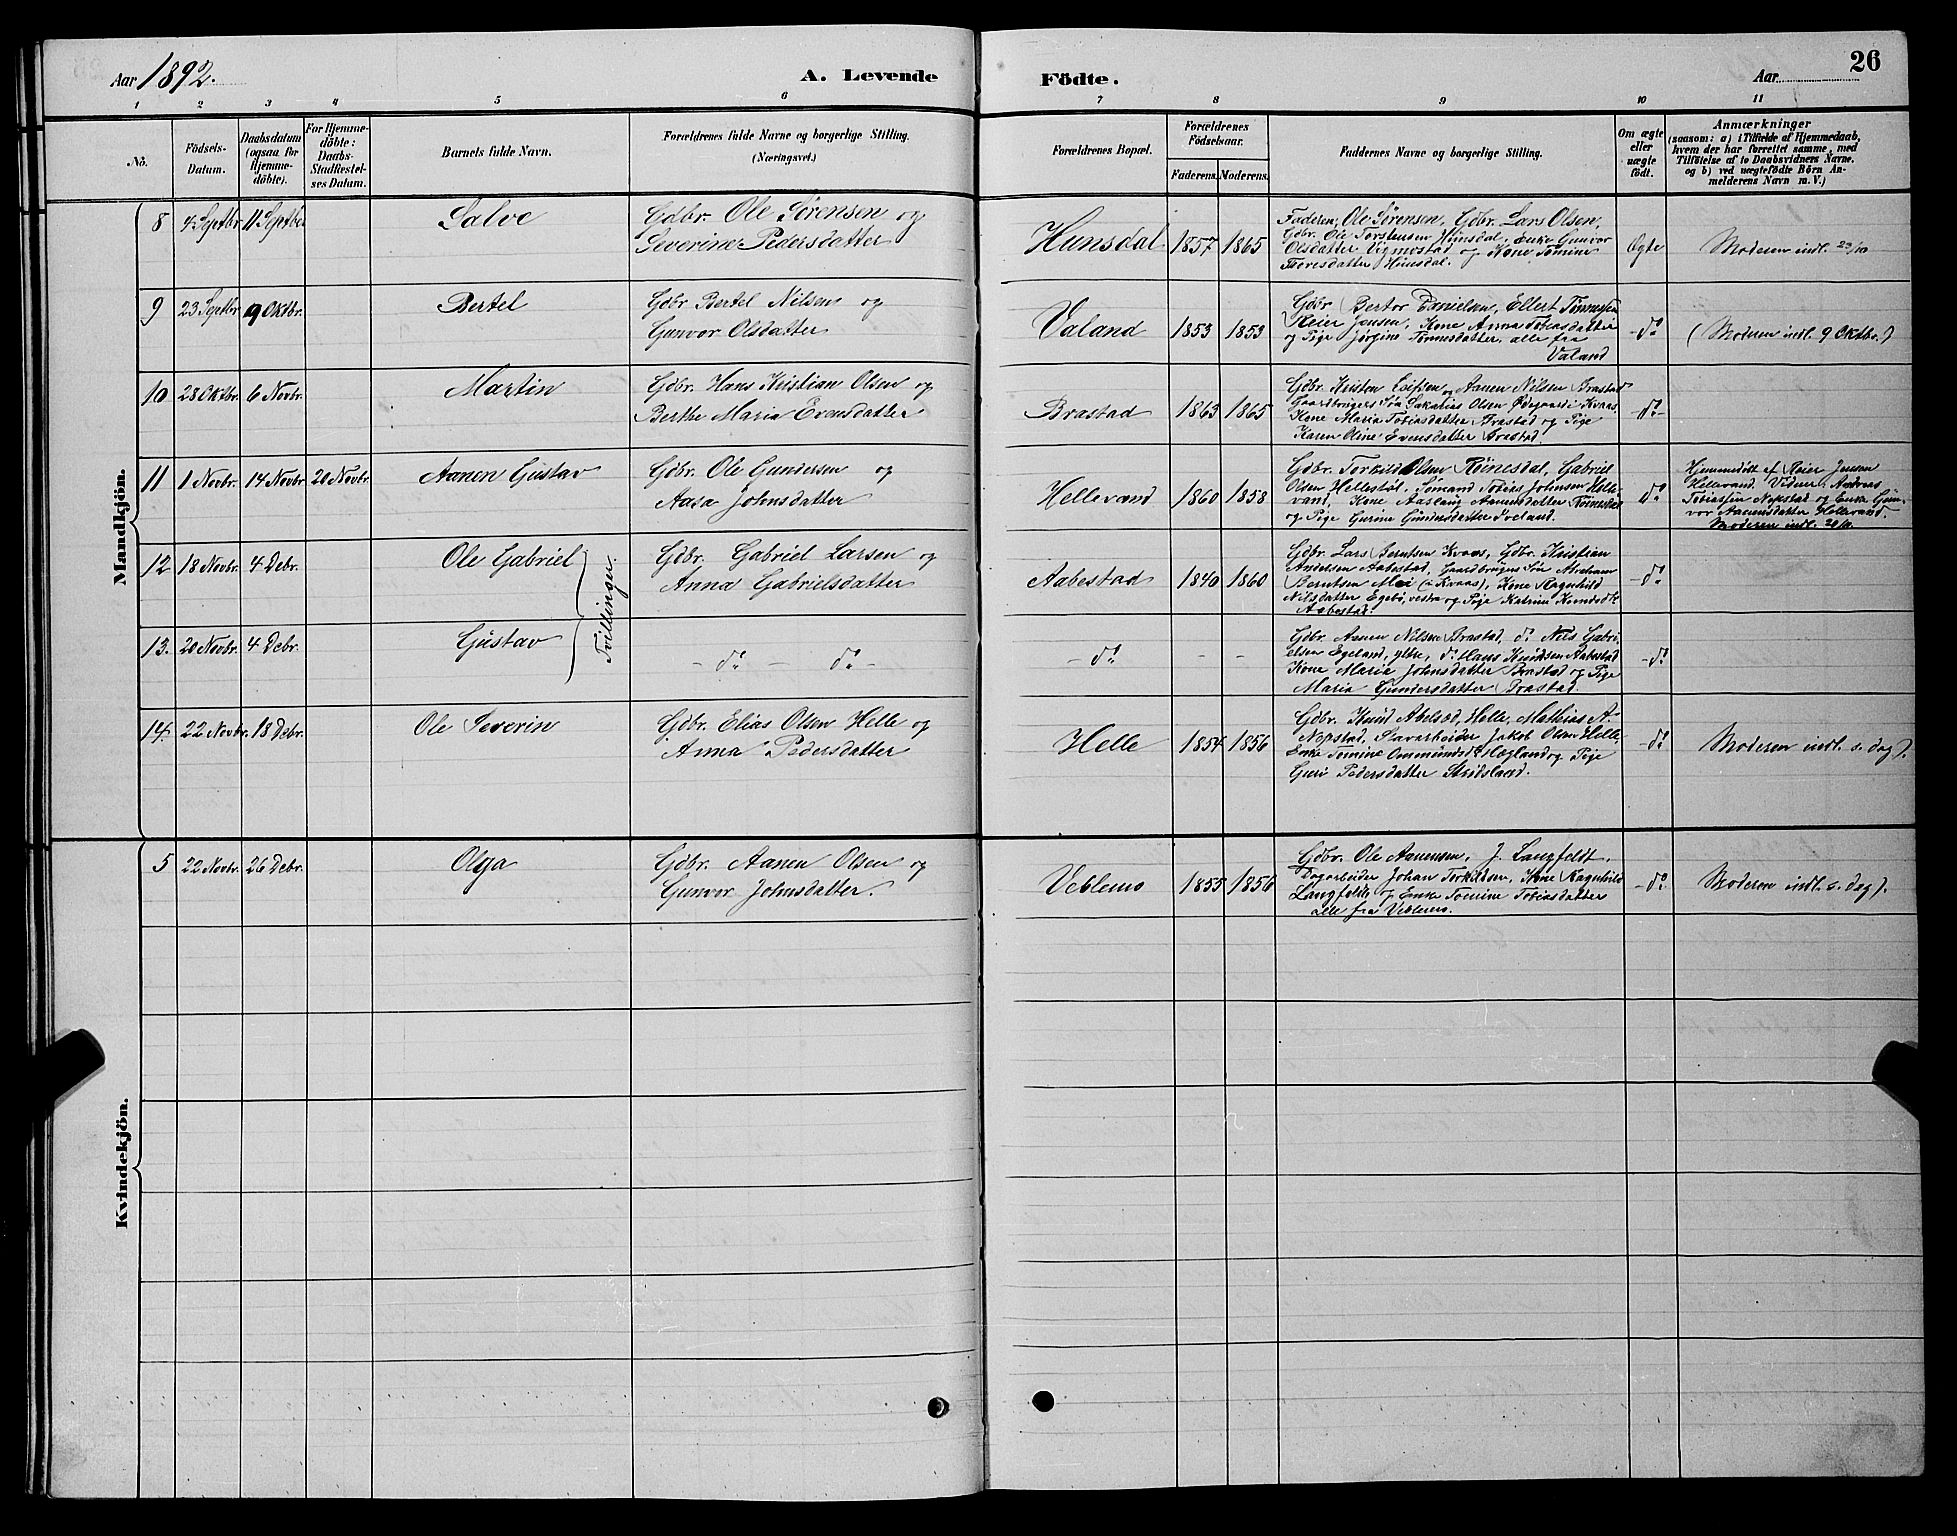 Aar 1892.
A. Levende
Födte.
Aar
26
1 2 3 4 5 6 7 8 9 10 11
No.
Födsels-
Datum.
Daabsdatum
(ogsaa for
Hjemme-
döbte).
For Hjemme-
döbte:
Daabs-
Stadfæstel-
ses Datum.
Barnets fulde Navn.
Forældrenes fulde Navne og borgerlige Stilling.
(Næringsvei.)
Forældrenes Bopæl.
Forældrenes
Födselsaar.
Faderens. Moderens.
Faddernes Navne og borgerlige Stilling.
Om ægte
eller
uægte
födt.
Anmærkninger
(saasom: a) i Tilfælde af Hjemmedaab,
hvem der har forrettet samme, med
Tilföielse af to Daabsvidners Navne.
og b) ved uægtefödte Börn An-
melderens Navn m. V.)
Mandkjön.
8 4 Septbr 11 Septbr Salve
Gdbr. Ole Sörensen og
Severine Pedersdatter
Hunsdal 1857 1865
Faderen, Ole Sörensen, Gdbr. Lars Olsen,
Gdbr. Ole Torstensen Hunsdal, Enke Gunvor
Olsdatter Vigmostad og Kone Tomine
Toresdatter Hunsdal.
Ægte
Moderen indl. 23/10
9 23 Septbr 9 Oktbr. Bertel
Gdbr Bertel Nilsen og
Gunvor Olsdatter
Valand 1853 1853
Gdbr. Bertor Danielsen, Ellert Tönnessen
Reier Jensen, Kone Anna Tobiasdatter
og Pige Jörgine Tönnesdatter, alle fra
Valand
-do
(Moderen indl. 9 Oktbr.)
10 28 Oktbr. 6 Novbr. Martin
Gdbr. Hans Kristian Olsen og
Berthe Maria Evensdatter
Brastad 1863 1865
Gdbr. Kristen Leifsen og Aanen Nilsen Brastad
Gaardbrugers Sön Sakarias Olsen Ödegaard i Kvaas,
Kone Maria Tobiasdatter Brastad og Pige
Karen Oline Evensdatter Brastad.
-do-
11 1 Novbr. 14 Novbr 20 Novbr. Aanen Gustav
Gdbr. Ole Gundersen og
Aasa Johnsdatter
Hellevand 1860 1858
Gdbr. Torkild Olsen Röinesdal, Gabriel
Olsen Hellestöl, Sömand Tobias Johnsen Helle-
vand, Kone Aaslaug Aanensdatter Röinesdal
og Pige Gurine Gundersdatter Iveland.
do
Hjemmedöbt af Reier Jensen
Hellevand. Vidner: Andreas
Tobiassen Nepstad og Enke Gun-
vor Aanensdatter Hellevand.
Moderen indl. 20/11.
12 18 Novbr. 4 Debr. Ole Gabriel
Tvillinger.
Gdbr. Gabriel Larsen og
Anna Gabrielsdatter
Aabestad 1840 1860
Gdbr. Lars Berntsen Kvaas, Gdbr. Kristian
Andersen Aabestad, Gaardbrugers Sön Abraham
Berntsen Moi (i Kvaas), Kone Ragnhild
Nilsdatter Egebö, vestre og Pige Katrine Knudsdtr
Aabestad.
-do
13. 20 Novbr. 4 Debr. Gustav
- do - do -
- do - -
Gdbr. Aanen Nilsen Brastad, do Nils Gabri-
elsen Egeland, ytre, do Hans Knudsen Aabestad
Kone Maria Johnsdatter Brastad og Pige
Maria Gundersdatter Brastad.
-do
14. 22 Novbr. 18 Debr. Ole Severin
Gdbr. Elias Olsen Helle og
Anna Pedersdatter
Helle 1854 1856
Gdbr. Knud Abelsöd, Helle, Mathias A.
Nepstad, Jakob Olsen Helle,
Enke Tomine Ommundsdtr Höglandog Pige
Guri Pedersdatter Skeidsland.
-do
Moderen indl. s. dag).
Kvindekjön.
5 22 Novbr. 26 Debr. Olga
Gdbr. Aanen Olsen og
Gunvor Johnsdatter.
Veblemo 1855 1856
Gdbr. Ole Aanensen, J. Langfeldt,
Dagarbeider Johan Torkildsen, Kone Ragnhild
Langfeldt og Enke Tomine Tobiasdatter
alle fra Veblemo.
-do
Moderen indl. s. dag).